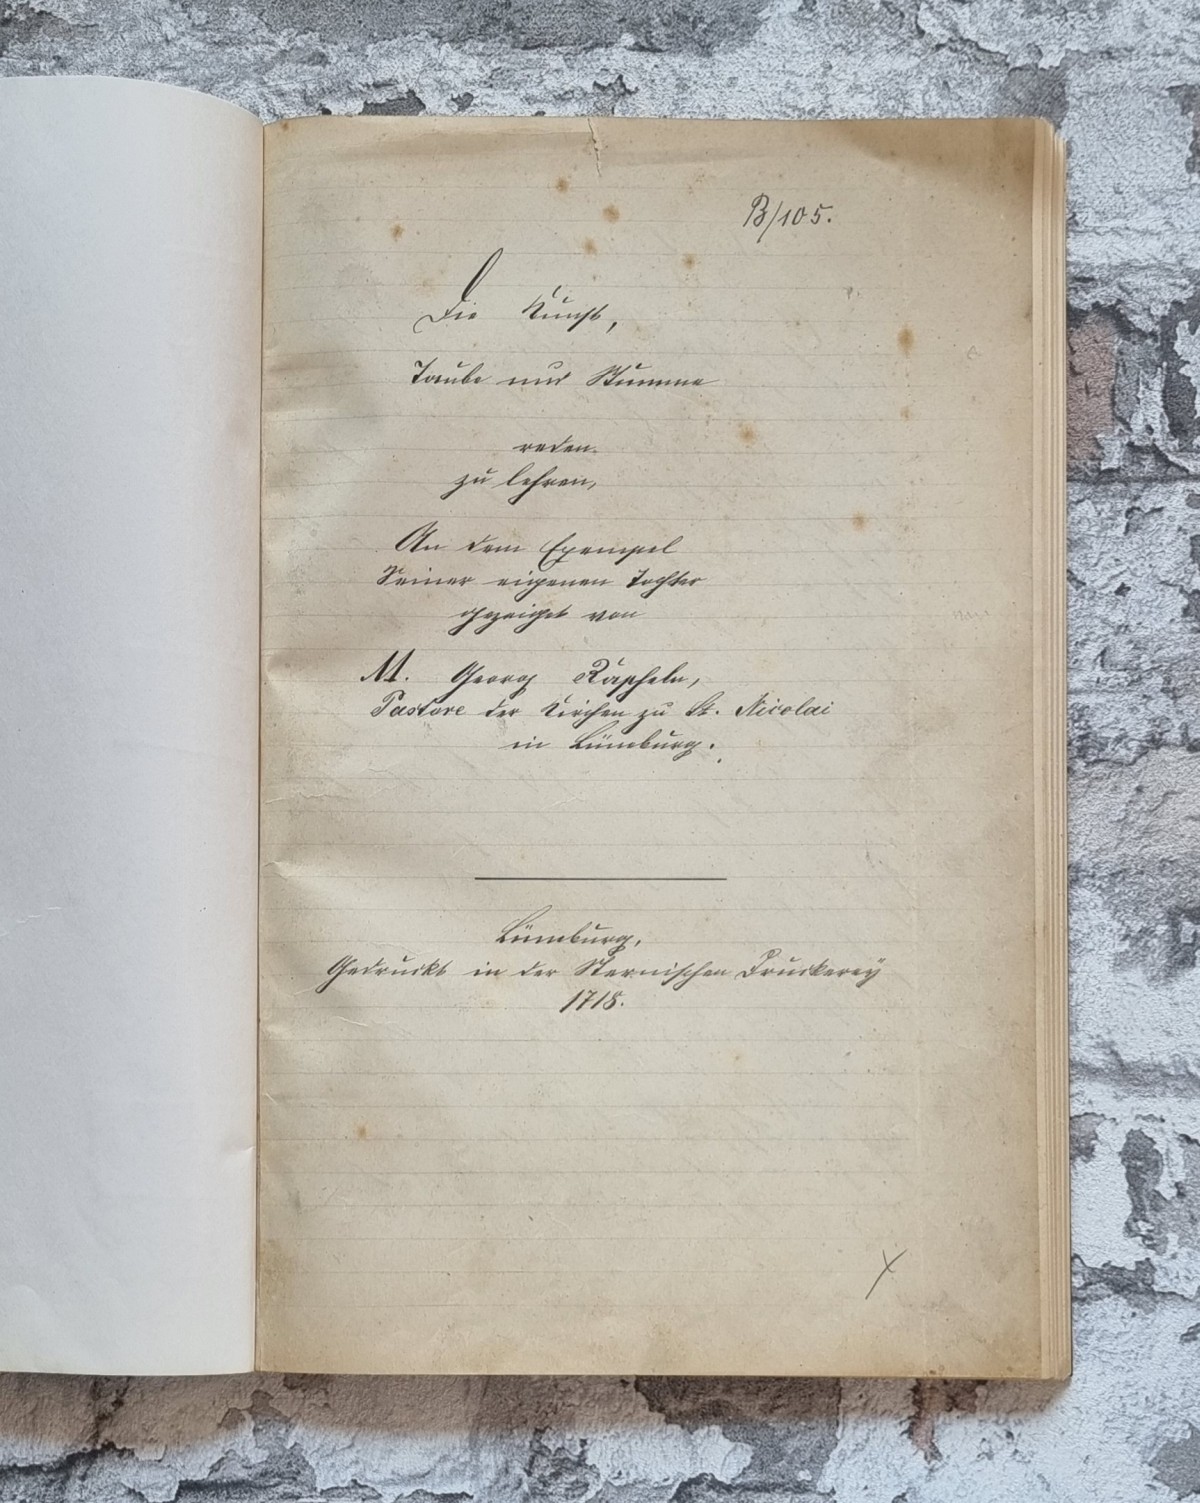 B/105.
Die Kunst,
Taube und Stumme
reden
zu lehren,
An dem Exempel
Seiner eigenen Tochter
gezeiget von
M. Georg Rapheln,
Pastore der Kirchen zu St. Nicolai
in Lüneburg.
Lüneburg,
Gedruckt in der Sternischen Druckerey
1718.